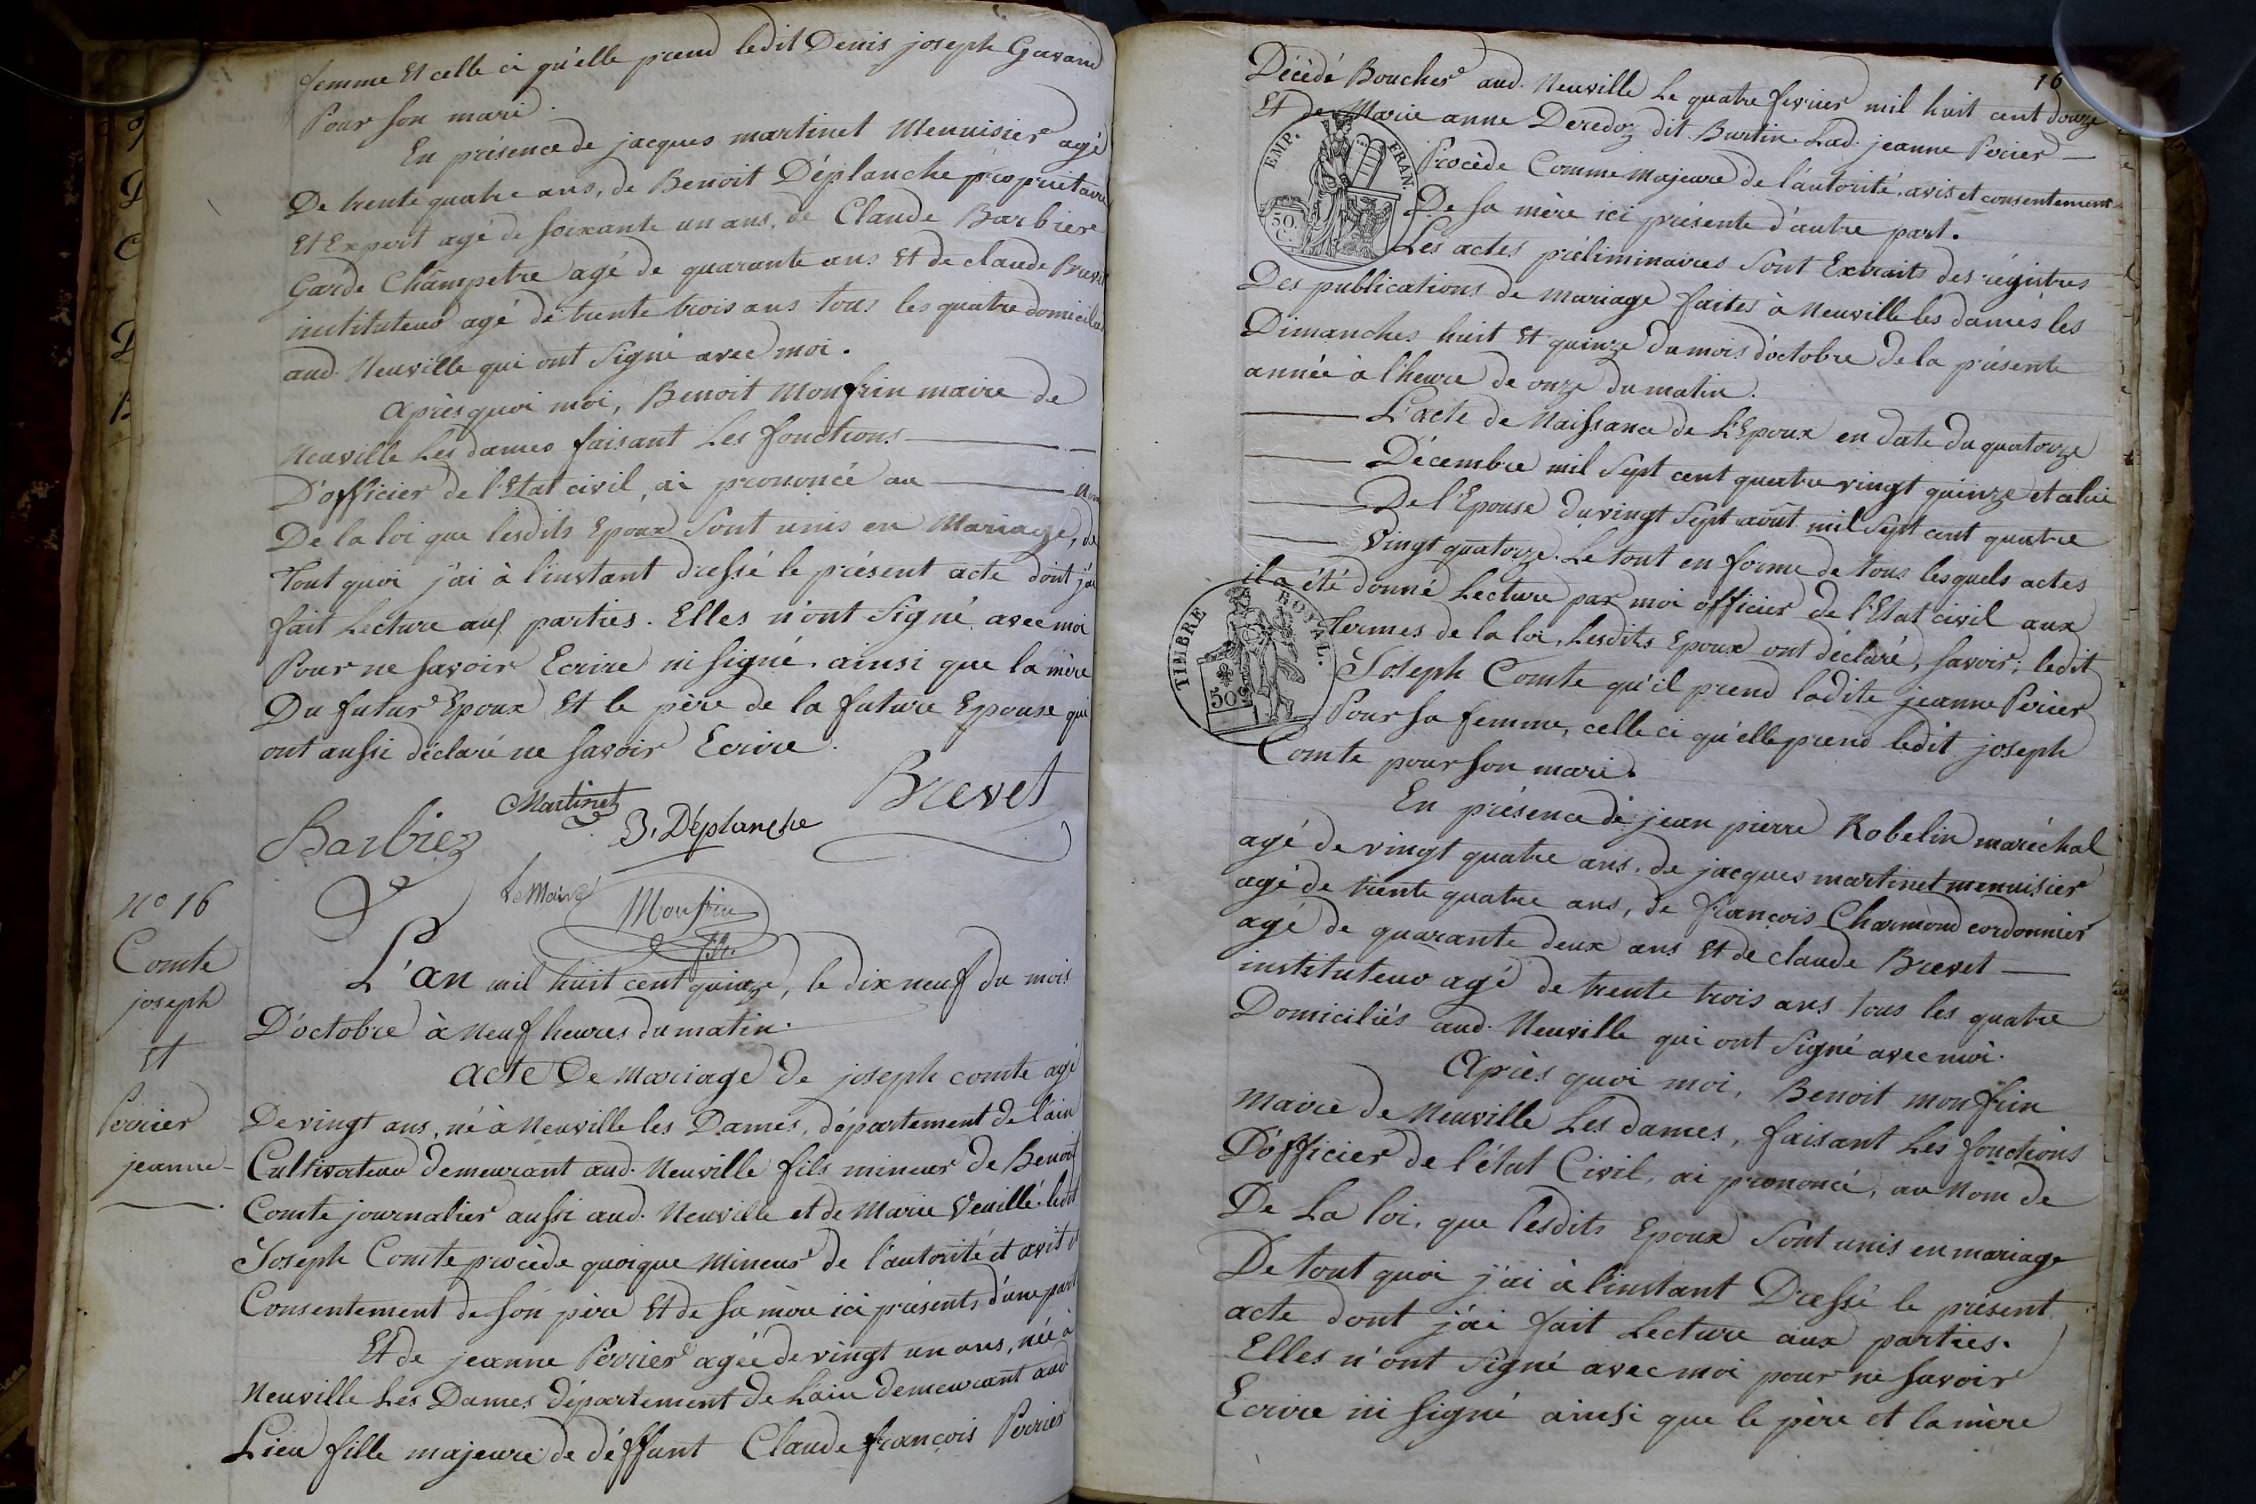 femme Et celle ci qu'elle prend ledit Denis joseph Gavand
Pour son mari.
En présence de jacques martinet Menuisier agé
De trente quatre ans, de Benoit Déplanche propriétaire
Et Expert agé de soixante un ans, de Claude Barbier
Garde Champetre agé de quarante ans Et de claude Brevet
instituteur agé de trente trois ans tous les quatre domiciliés
aud. Neuville qui ont Signé avec moi.
Après quoi moi, Benoit Monfrin maire de
Neuville Les dames faisant Les fonctions
D'officier de l'Etat civil, ai prononcé au nom
De la loi que lesdits Epoux Sont unis en Mariage, de
Tout quoi j'ai à l'instant dressé le présent acte dont j'ai
fait Lecture aux parties. Elles n'ont Signé avec moi
Pour ne Savoir Ecrire ni signé. ainsi que la mère
Du futur Epoux Et le père de la future Epouse qui
ont aussi déclaré ne Savoir Ecrire.
Martinet
Brevet
Barbier
B. Déplanche
Le Maire
Monfrin
N° 16
Comte
joseph
Et
Perrier
jeanne
L'an mil huit cent quinze, le dix neuf du mois
D'octobre à Neuf heures du matin.
Acte De Mariage de joseph comte agé
De vingt ans, né à Neuville les Dames, département de l'ain
Cultivateur demeurant aud. Neuville fils mineur de Benoit
Comte journalier aussi aud. Neuville et de Marie Veuillé. ledit
Joseph Comte procède quoique Mineur de l'autorité et avis et
Consentement de son père Et de sa mère ici présents d'une part
Et de jeanne Perrier agée de vingt un ans, née à
Neuville Les Dames département de L'ain demeurant aud
Lieu fille majeure de déffunt Claude françois Perrier
16
Décédé Boucher aud. Neuville Le quatre fevrier mil huit cent douze
Et de Marie anne Deredoz dit Burtin. Lad. jeanne Perier
EMP. FRAN.
50 C
Procède Comme majeure de l'autorité, avis et consentement
De sa mère ici présente d'autre part.
Les actes préliminaires Sont Extraits des régistres
Des publications de mariage faites à Neuville les dames les
Dimanches huit Et quinze du mois d'octobre De la présente
année à l'heure de onze du matin.
L'acte de Naissance de L'Epoux en date du quatorze
Décembre mil Sept cent quatre vingt quinze et celui
De l'Epouse du vingt Sept août mil Sept cent quatre
Vingt quatorze. Le tout en forme de tous lesquels actes
il a été donné Lecture par moi officier de l'Etat civil aux
TIMBRE ROYAL.
50 C
Termes de la loi, Lesdits Epoux ont déclaré, Savoir; ledit
Joseph Comte qu'il prend ladite jeanne Perier
Pour sa femme, celle ci qu'elle prend ledit joseph
Comte pour son mari.
En présence de jean pierre Robelin maréchal
agé de vingt quatre ans. de jacques martinet menuisier
agé de trente quatre ans, de françois Charmond cordonnier
agé de quarante deux ans Et de claude Brevet
instituteur agé de trente trois ans tous les quatre
Domiciliés aud. Neuville qui ont Signé avec moi.
Après quoi moi, Benoit monfrin
Maire de Neuville Les dames, faisant Les fonctions
D'officier de l'état Civil, ai prononcé, au Nom de
De La loi, que lesdits Epoux Sont unis en mariage
De tout quoi j'ai à l'instant Dressé le présent
acte dont j'ai fait Lecture aux parties.
Elles n'ont Signé avec moi pour ne Savoir
Ecrire ni Signé ainsi que le père et la mère